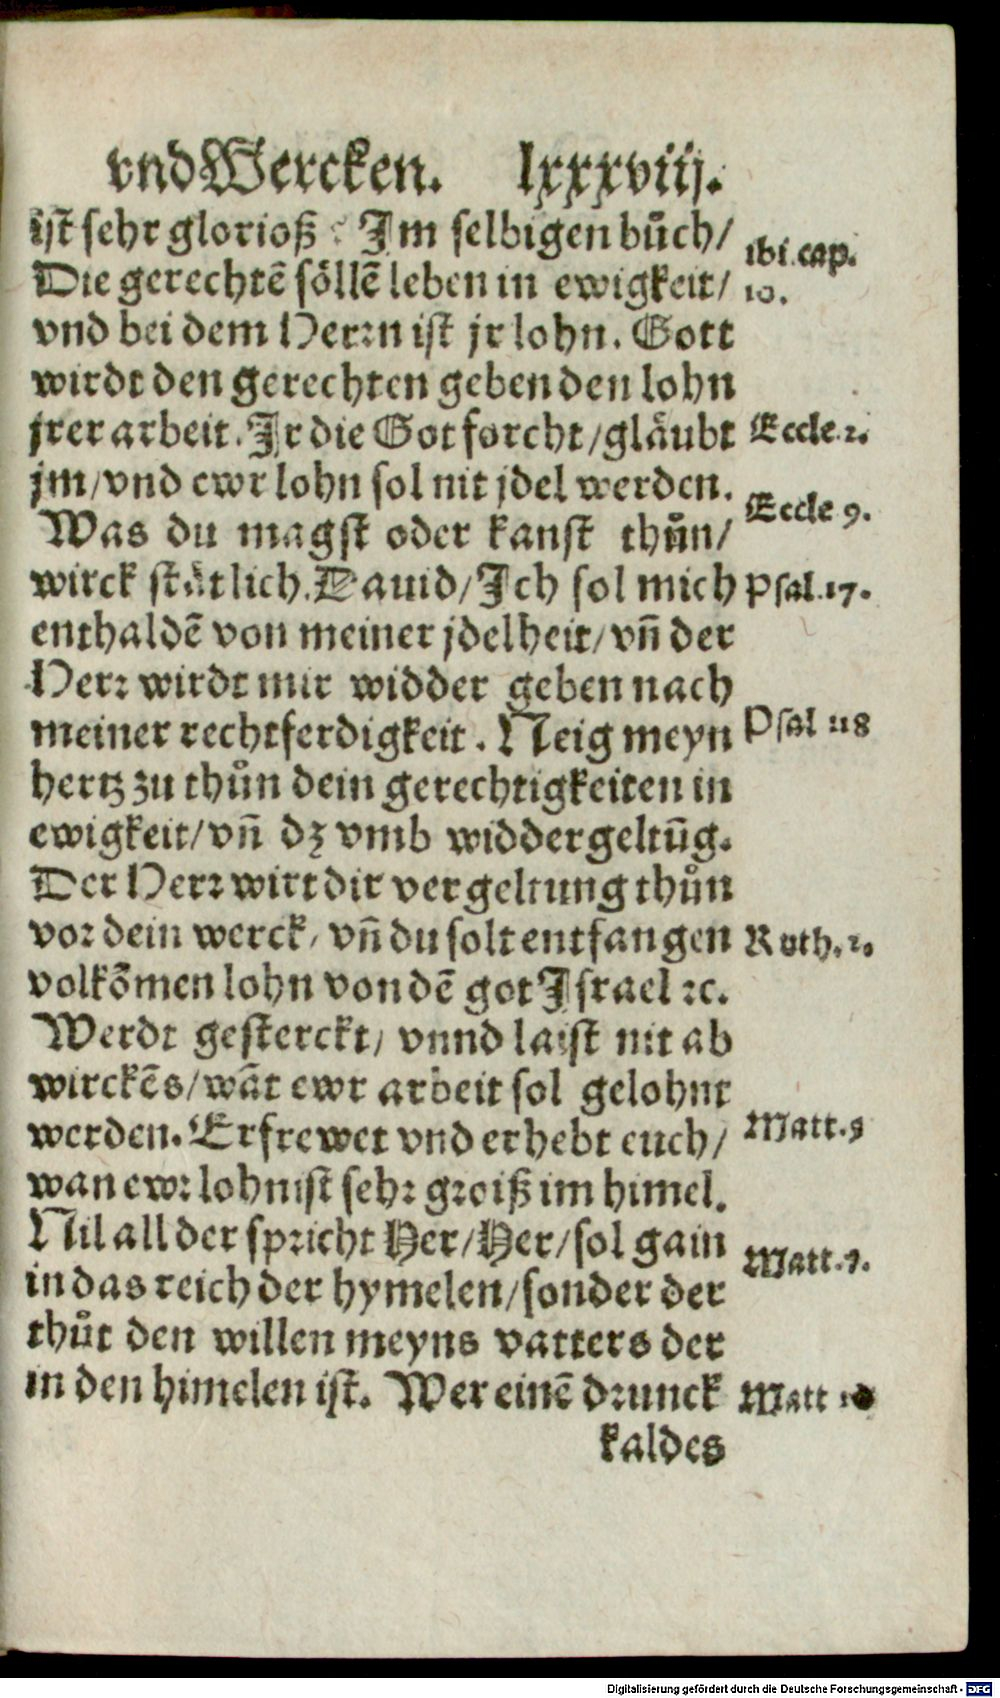 vnd Wercken. lxxxviij.
ist sehr glorioß : Im selbigen bůch/
Die gerechtē söllē leben in ewigkeit/
vnd bei dem Herꝛn ist jr lohn. Gott
wirdt den gerechten geben den lohn
jrer arbeit. Ir die Got forcht/gläubt
jm/vnd ewr lohn sol nit jdel werden.
Was du magst oder kanst thůn/
wirck stätlich. Dauid/Ich sol mich
enthaldē von meiner jdelheit/vñ der
Herꝛ wirdt mir widder geben nach
meiner rechtferdigkeit. Neig meyn
hertz zu thůn dein gerechtigkeiten in
ewigkeit/vñ dz vmb widdergeltũg.
Der Herꝛ wirt dir vergeltung thůn
voꝛ dein werck/vñ du solt entfangen
volkõmen lohn von dē got Israel ꝛc.
Werdt gesterckt/vnnd laist nit ab
wirckēs/wāt ewr arbeit sol gelohnt
werden. Erfrewet vnd erhebt euch/
wan ewꝛ lohn ist sehꝛ gꝛoiß im himel.
Nit all der spꝛicht Her/Her/sol gain
in das reich der hymelen/sonder der
thůt den willen meyns vatters der
in den himelen ist. Wer einē dꝛunck
kaldes
ibi.cap.
10.
Eccle.2.
Eccle 9.
Psal.17.
Psal 118
Ruth.2.
Matt.5
Matt.7.
Matt 10
Digitalisierung gefördert durch die Deutsche Forschungsgemeinschaft - DFG